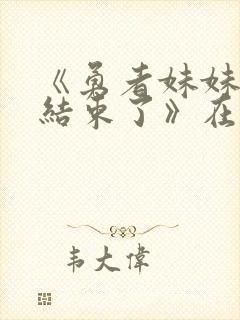 《勇者妹妹
結束了》在
韦大偉